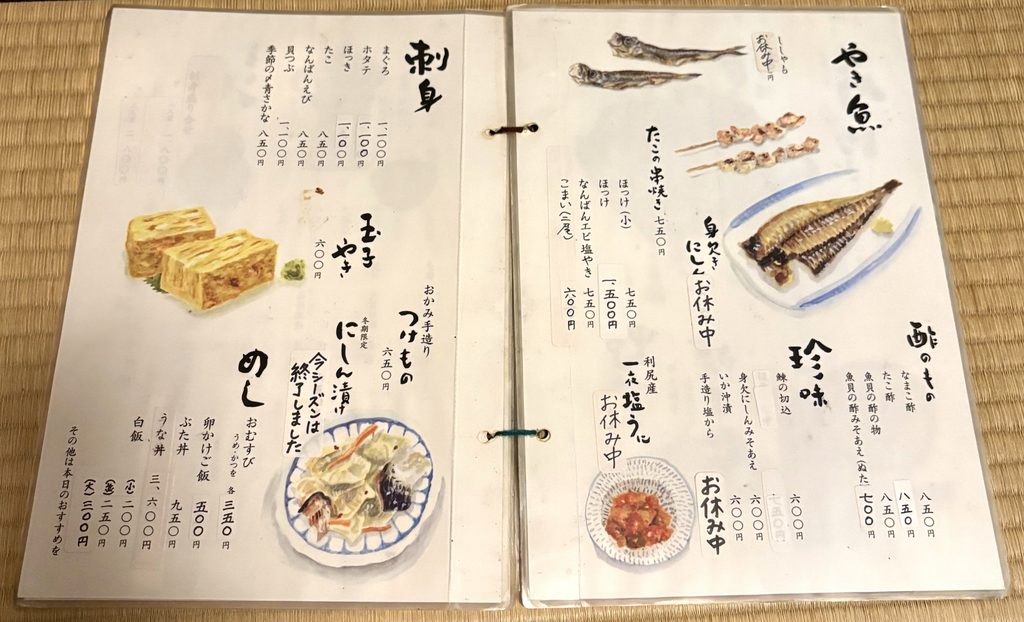 やき魚
ししゃも
お休み中円
たこの串焼き 七五〇円
身欠きにしん お休み中
ほっけ(小) 七五〇円
ほっけ 一、五〇〇円
なんばんエビ塩やき 七五〇円
こまい(二尾) 六〇〇円
酢のもの
なまこ酢 八五〇円
たこ酢 八五〇円
魚貝の酢の物 八五〇円
魚貝の酢みそあえ(ぬた) 七〇〇円
珍味
鰊の切込 六〇〇円
身欠にしんみそあえ 六〇〇円
いか沖漬 六〇〇円
手造り塩から お休み中
利尻産
一夜塩うに
お休み中
刺身
まぐろ 一、一〇〇円
ホタテ 一、一〇〇円
ほっき 一、一〇〇円
たこ 八五〇円
なんばんえび 八五〇円
貝つぶ 一、一〇〇円
季節の〆青さかな 八五〇円
玉子やき
六〇〇円
おかみ手造り
つけもの
六五〇円
冬期限定
にしん漬け
今シーズンは
終了しました
めし
おむすび
うめ・かつを 各 三五〇円
卵かけご飯 五〇〇円
ぶた丼 九五〇円
うな丼 三、六〇〇円
白飯 (小)二〇〇円
(並)二五〇円
(大)三〇〇円
その他は本日のおすすめを